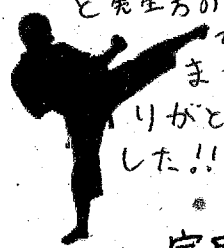 と先生方の
ま
りがと
した!!